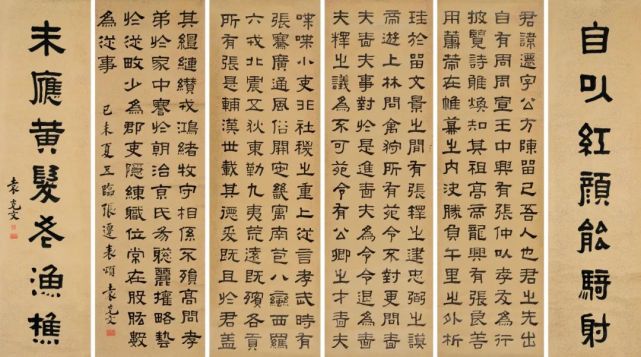 自以紅顏能騎射
君諱遷字公方陳留己吾人也君之先出
自有周周宣王中興有張仲以孝友為行
披覽詩雅煥知其祖高帝龍興有張良善
用籌策在帷幕之內決勝負千里之外析
珪於留文景之間有張釋之建忠弼之謨
帝遊上林問禽狩所有苑令不對更問嗇
夫嗇夫事對於是進嗇夫為令令退為嗇
夫釋之議為不可苑令有公卿之才嗇夫
喋喋小吏非社稷之重上從言孝武時有
張騫廣通風俗開定畿寓南苞八蠻西羈
六戎北震五狄東勤九夷荒遠既殯各貢
所有張是輔漢世載其德爰既且於君蓋
其纏縺纘戎鴻緒牧守相係不殞高問孝
弟於家中謇於朝治京氏易聰麗權略藝
於從畋少為郡吏隱練職位常在股肱數
為從事
己未夏五臨張遷表頌 袁克文
未應黃髮老漁樵
袁克文